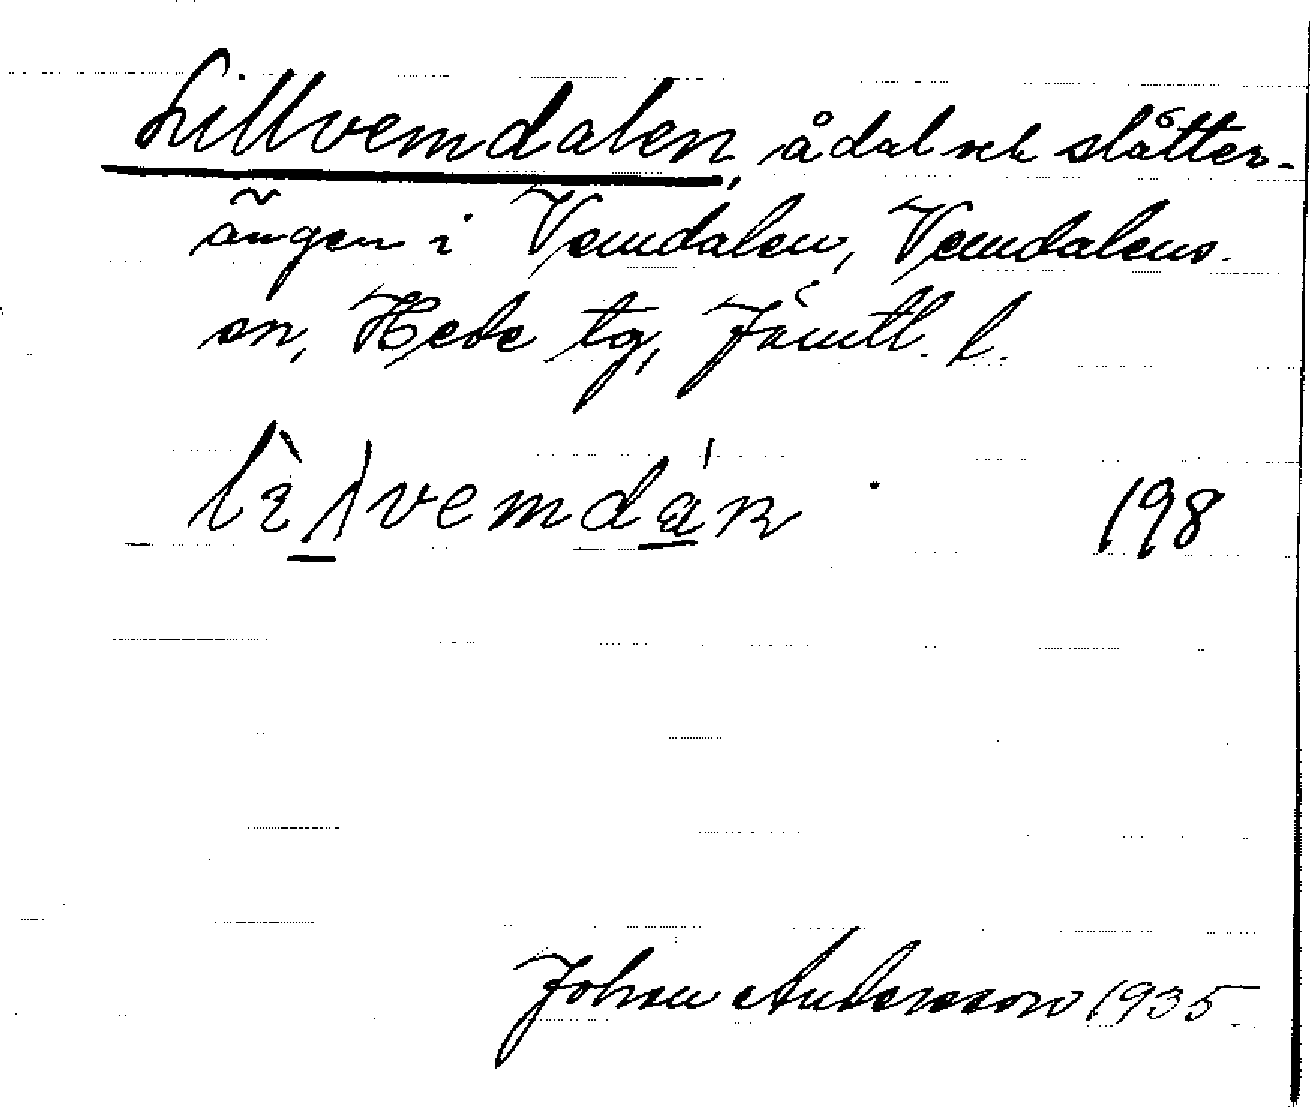 Lillvemdalen, ådal och slåtter-
ängar i Vemdalen, Vemdalens
sn, Hede tg, Jämtl. l.
198
Johan Andersson 1935